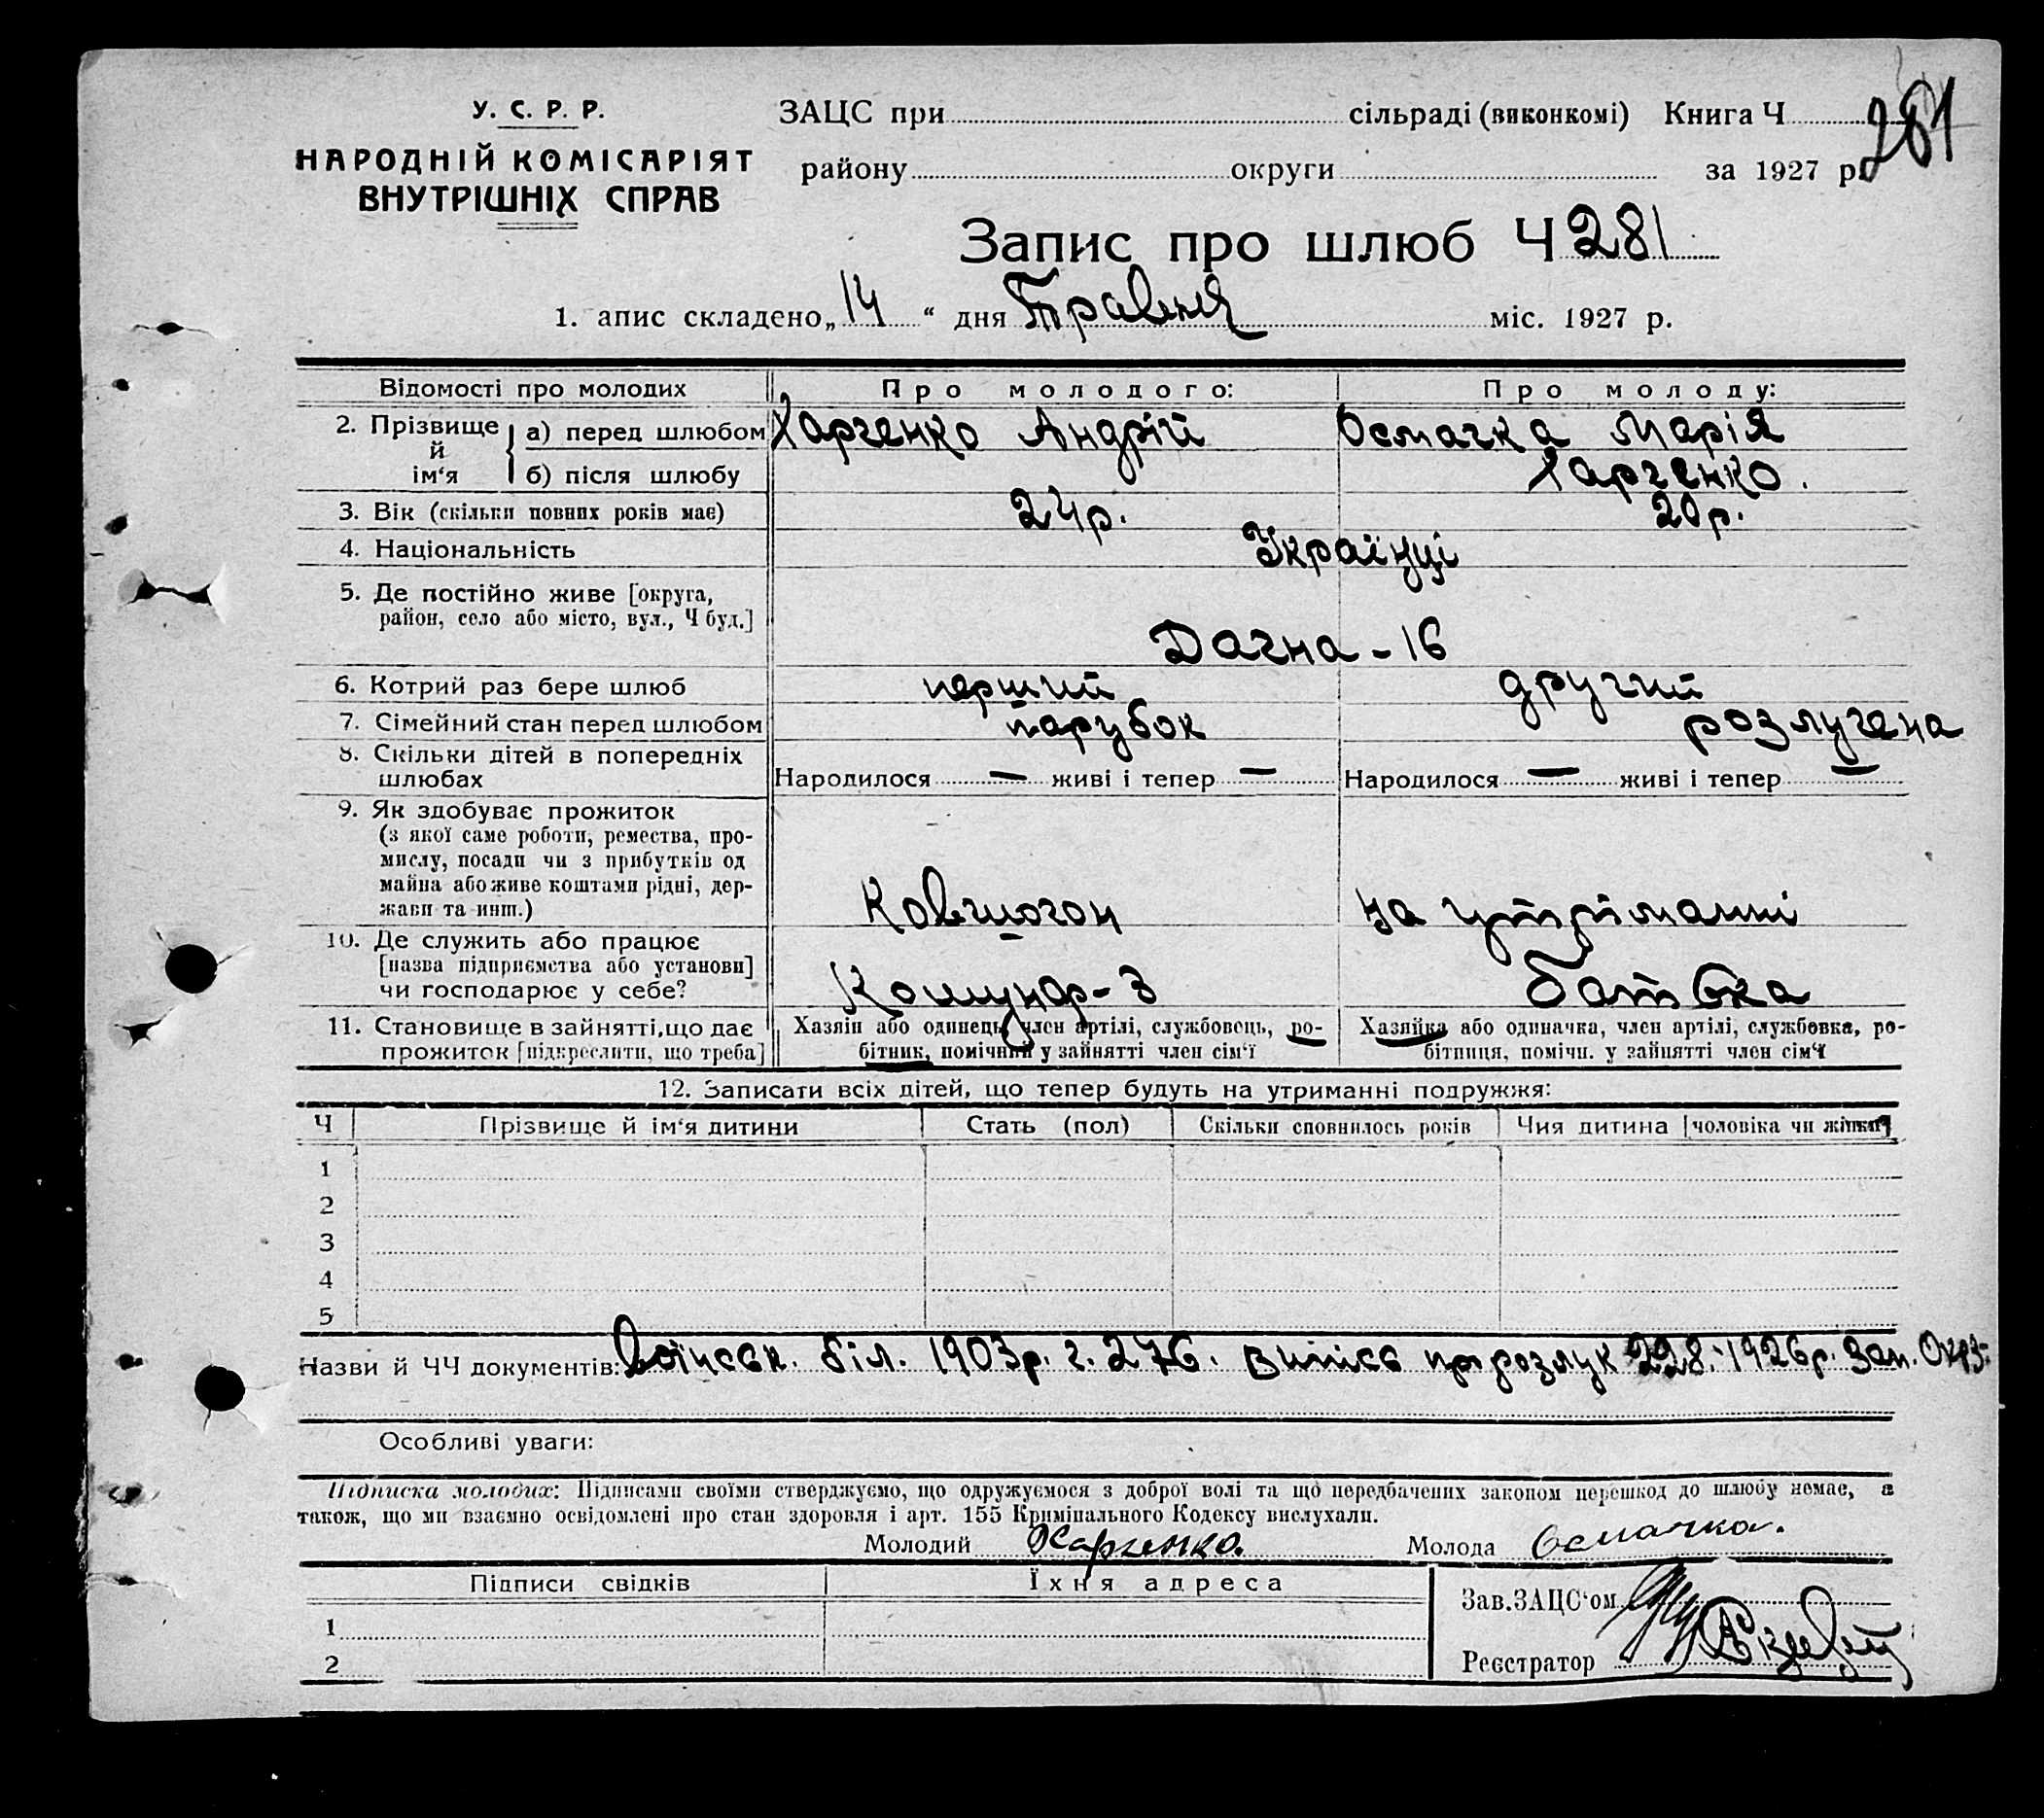 У. С. Р. Р.
НАРОДНІЙ КОМІСАРІЯТ
ВНУТРІШНІХ СПРАВ
ЗАЦС при сільраді (виконкомі) Книга Ч
281
району округи за 1927 р.
Запис про шлюб Ч 281
1. апис складено „14“ дня Травня міс. 1927 р.
Відомості про молодих Про молодого: Про молоду:
2. Прізвище й ім‘я а) перед шлюбом Харченко Андрій Осмачка Марія
б) після шлюбу Харченко.
3. Вік (скільки повних років має) 24р. 20р.
4. Національність Українці
5. Де постійно живе [округа,
район, село або місто, вул., Ч буд.]
Дачна - 16
6. Котрий раз бере шлюб перший другий
7. Сімейний стан перед шлюбом парубок розлучена
8. Скільки дітей в попередніх
шлюбах Народилося — живі і тепер — Народилося — живі і тепер —
9. Як здобуває прожиток
(з якої саме роботи, ремества, про-
мислу, посади чи з прибутків од
майна або живе коштами рідні, дер-
жави та инш.) на утріманні
10. Де служить або працює
[назва підприємства або установи]
чи господарює у себе? Комунар - 3 батька
11. Становище в зайнятті, що дає
прожиток [підкреслити, що треба]
Хазяін або одинець, член артілі, службовець, ро-
бітник, помічник у зайнятті член сім‘ї
Хазяйка або одиначка, член артілі, службовка, ро-
бітниця, помічн. у зайнятті член сім‘ї
12. Записати всіх дітей, що тепер будуть на утриманні подружжя:
Ч Прізвище й ім‘я дитини Стать (пол) Скільки сповнилось років Чия дитина [чоловіка чи жінки]
1
2
3
4
5
Назви й ЧЧ документів: Воінськ. біл. 1903р. ч. 276. витяг пр розлук 228. 1926р. Зап. Окр
Особливі уваги:
Підписка молодих: Підписами своїми стверджуємо, що одружуємося з доброї волі та що передбачених законом перешкод до шлюбу немає, а
також, що ми взаємно освідомлені про стан здоровля і арт. 155 Кримінального Кодексу вислухали.
Молодий Харченко. Молода Осмачка.
Підписи свідків Їхня адреса
Зав. ЗАЦС‘ом
1
2
Реєстратор